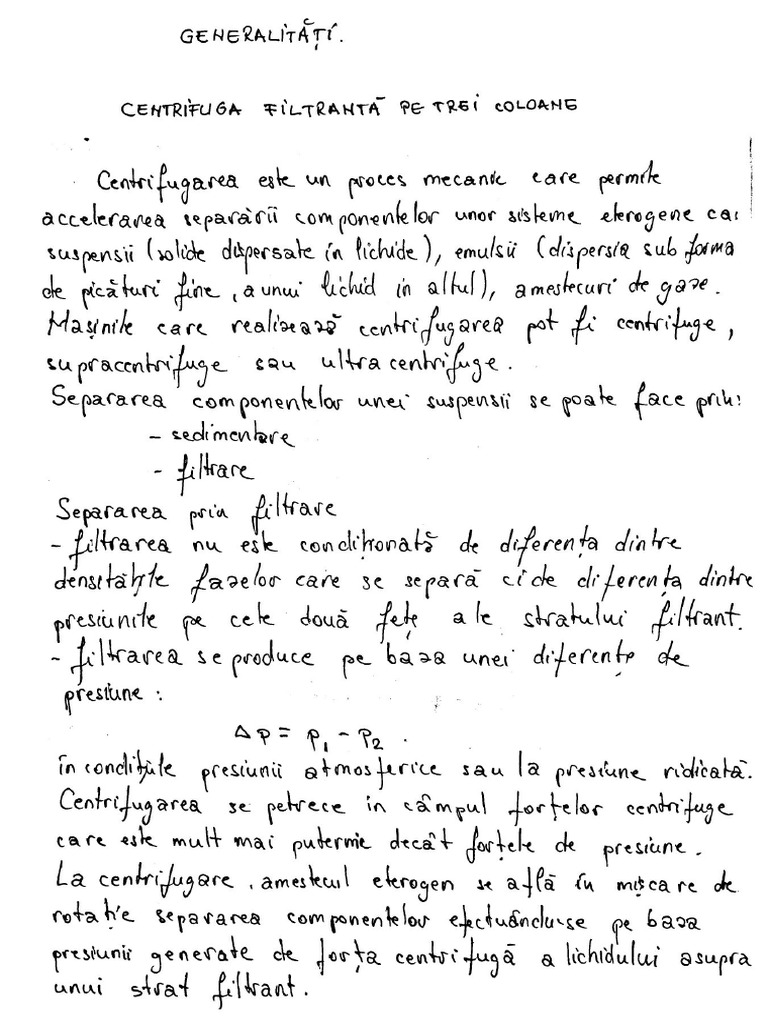 GENERALITĂȚI.
CENTRIFUGA FILTRANTĂ PE TREI COLOANE
Centrifugarea este un proces mecanic care permite
accelerarea separării componentelor unor sisteme eterogene ca:
suspensii (solide dispersate în lichide), emulsii (dispersia sub forma
de picături fine, a unui lichid in altul), amestecuri de gaze.
Mașinile care realizează centrifugarea pot fi centrifuge,
supracentrifuge sau ultracentrifuge.
Separarea componentelor unei suspensii se poate face prin:
- sedimentare
- filtrare
Separarea prin filtrare
- filtrarea nu este condiționată de diferența dintre
densitățile fazelor care se separă ci de diferența dintre
presiunile pe cele două fețe ale stratului filtrant.
- filtrarea se produce pe baza unei diferențe de
presiune :
Δp = p₁ - p₂ .
în condițiile presiunii atmosferice sau la presiune ridicată.
Centrifugarea se petrece in câmpul forțelor centrifuge
care este mult mai puternic decât forțele de presiune.
La centrifugare, amestecul eterogen se află în mișcare de
rotație separarea componentelor efectuându-se pe baza
presiunii generate de forța centrifugă a lichidului asupra
unui strat filtrant.